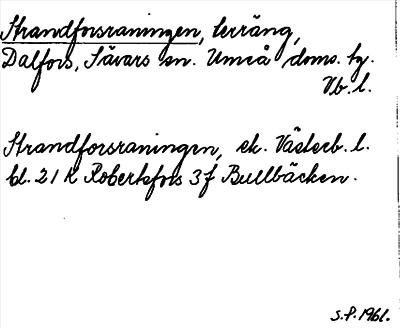 Strandforsraningen, terräng,
Dalfors, Sävars sn. Umeå doms. tg.
Vb. l.
Strandforsraningen, ek. Västerb. l.
bl. 21 K Robertsfors 3 f Bullbäcken.
S.P. 1961.